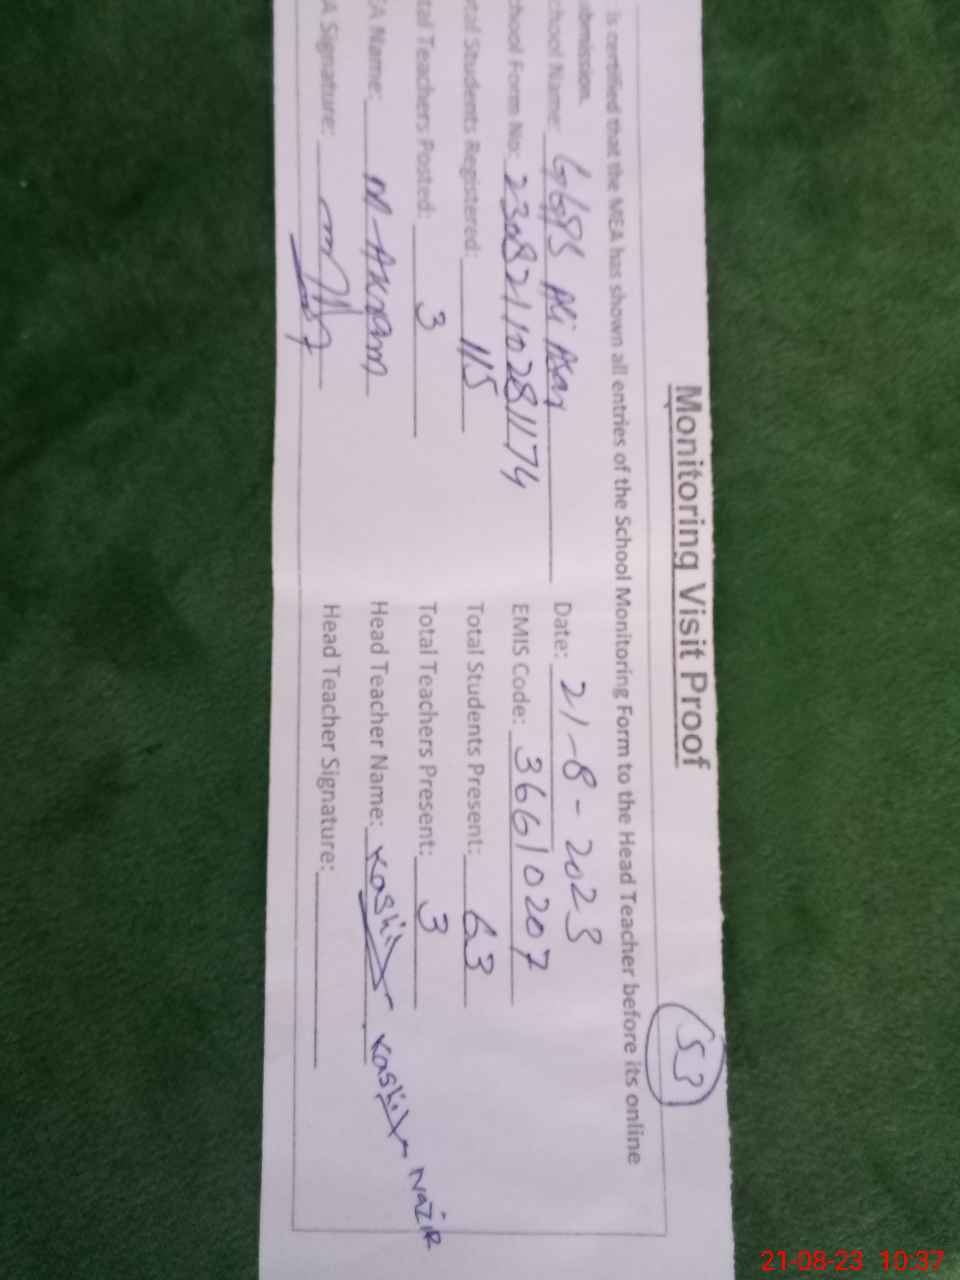 Monitoring Visit Proof
53
is certified that the MEA has shown all entries of the School Monitoring Form to the Head Teacher before its online
bmission.
chool Name: GGPS Date: 21-8-2023
chool Form No: 2308211028 1174 EMIS Code: 36610207
otal Students Registered: 115 Total Students Present: 63
tal Teachers Posted: 3 Total Teachers Present: 3
EA Name: M-Akram Head Teacher Name: Kashif Kashif Nazir
A Signature: Head Teacher Signature:
21-08-23 10:37